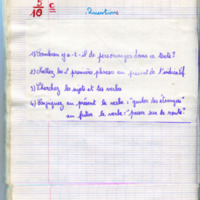 5
10
C
Questions
1) Combien y a-t-il de personnages dans ce texte?
2) Mettez les 2 premières phrases au présent de l'indicatif
3) Cherchez les sujets et les verbes
4) Conjuguez au présent le verbe : "guider des étrangers"
au futur le verbe : "passer sur la route"